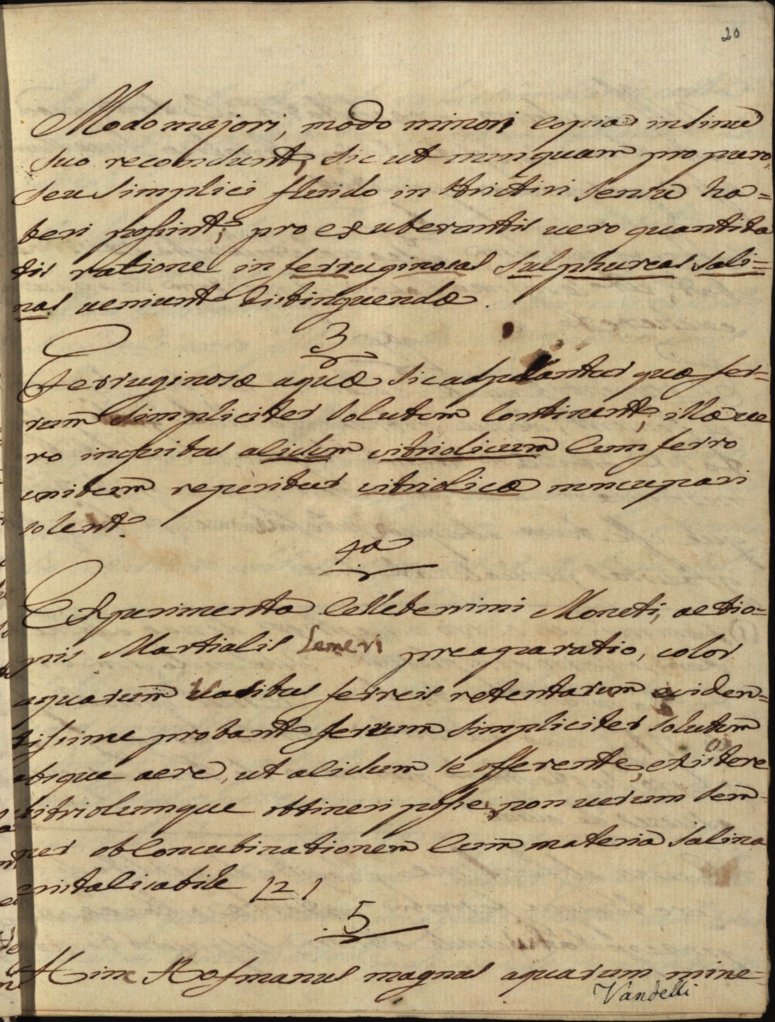 20
Modo majori, modo minori copia in sinu
suo recondunt, sic ut nunquam pro puro,
seu simplici fluido in strictiri sensu ha=
beri possint; pro exuberantis vero quantita
tis ratione in ferruginosas sulphureas sali=
nas veniunt distinguendæ.
3
Ferruginosæ aquæ sic adpelantur quæ fer=
rum simpliciter solutum continent, illæ ve
ro in quibus acidum vitriolicum cum ferro
unitum reperitur vitriolicæ nuncupari
solent.
4a
Experimenta Celeberrimi Moneti, aetio=
pis Martialis Lemeri preaparatio, color
aquarum vasibus ferreis retentarum eviden=
tissime probant ferrum simpliciter solutum
absque aere, ut acidum se offerente, existere
vitriolumque obtineri posse, non verum sem=
per ob concubinationem cum materia salina
cristalisabile 121
5
Hinc Hofmanus magnus aquarum mine=
Vandelli